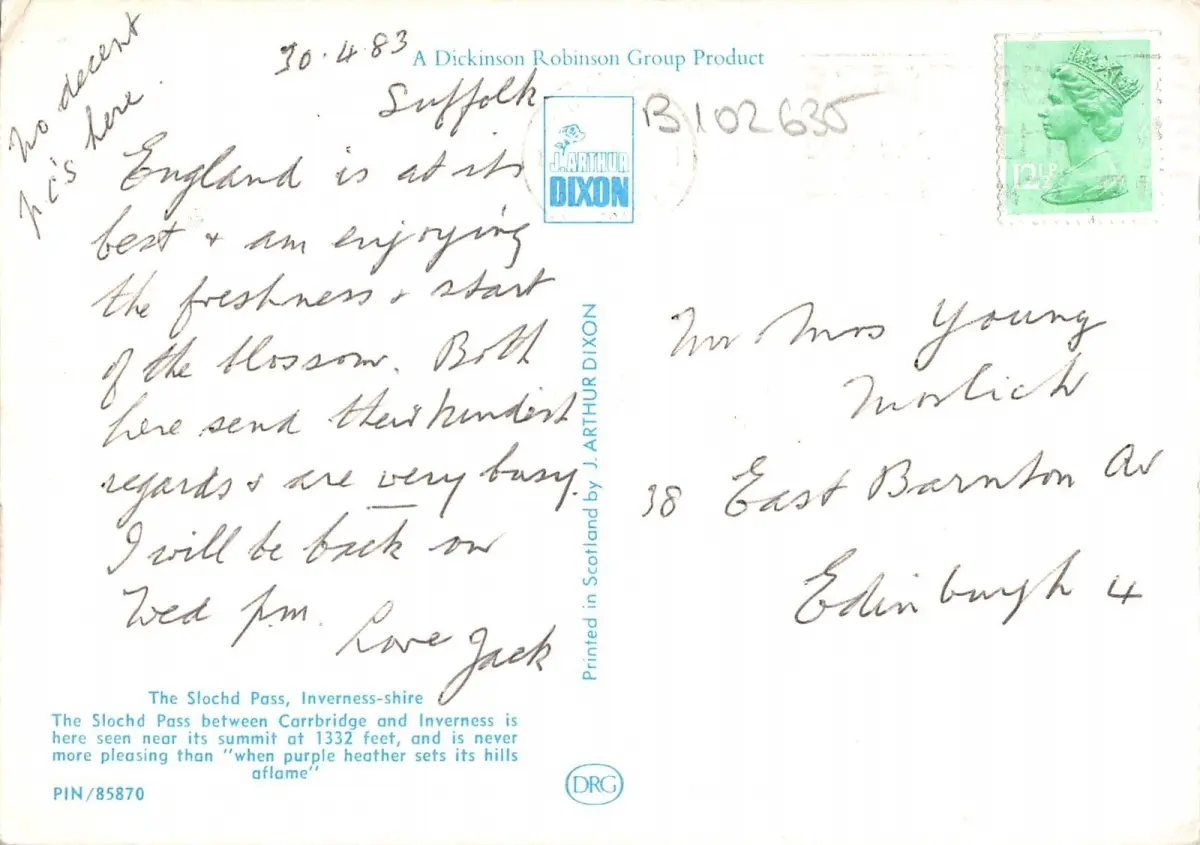 No decent
pc's here.
30.4.83
Suffolk
England is at its
best + am enjoying
the freshness + start
of the blossom. Both
here send their kindest
regards & are very busy.
I will be back on
Wed p.m.
Love Jack
The Slochd Pass, Inverness-shire
The Slochd Pass between Carrbridge and Inverness is
here seen near its summit at 1332 feet, and is never
more pleasing than "when purple heather sets its hills
aflame"
PIN/85870
A Dickinson Robinson Group Product
J. ARTHUR
DIXON
Printed in Scotland by J. ARTHUR DIXON
DRG
B102635
12½P
Mr Mrs Young
Morlich
38 East Barnton Av
Edinburgh 4